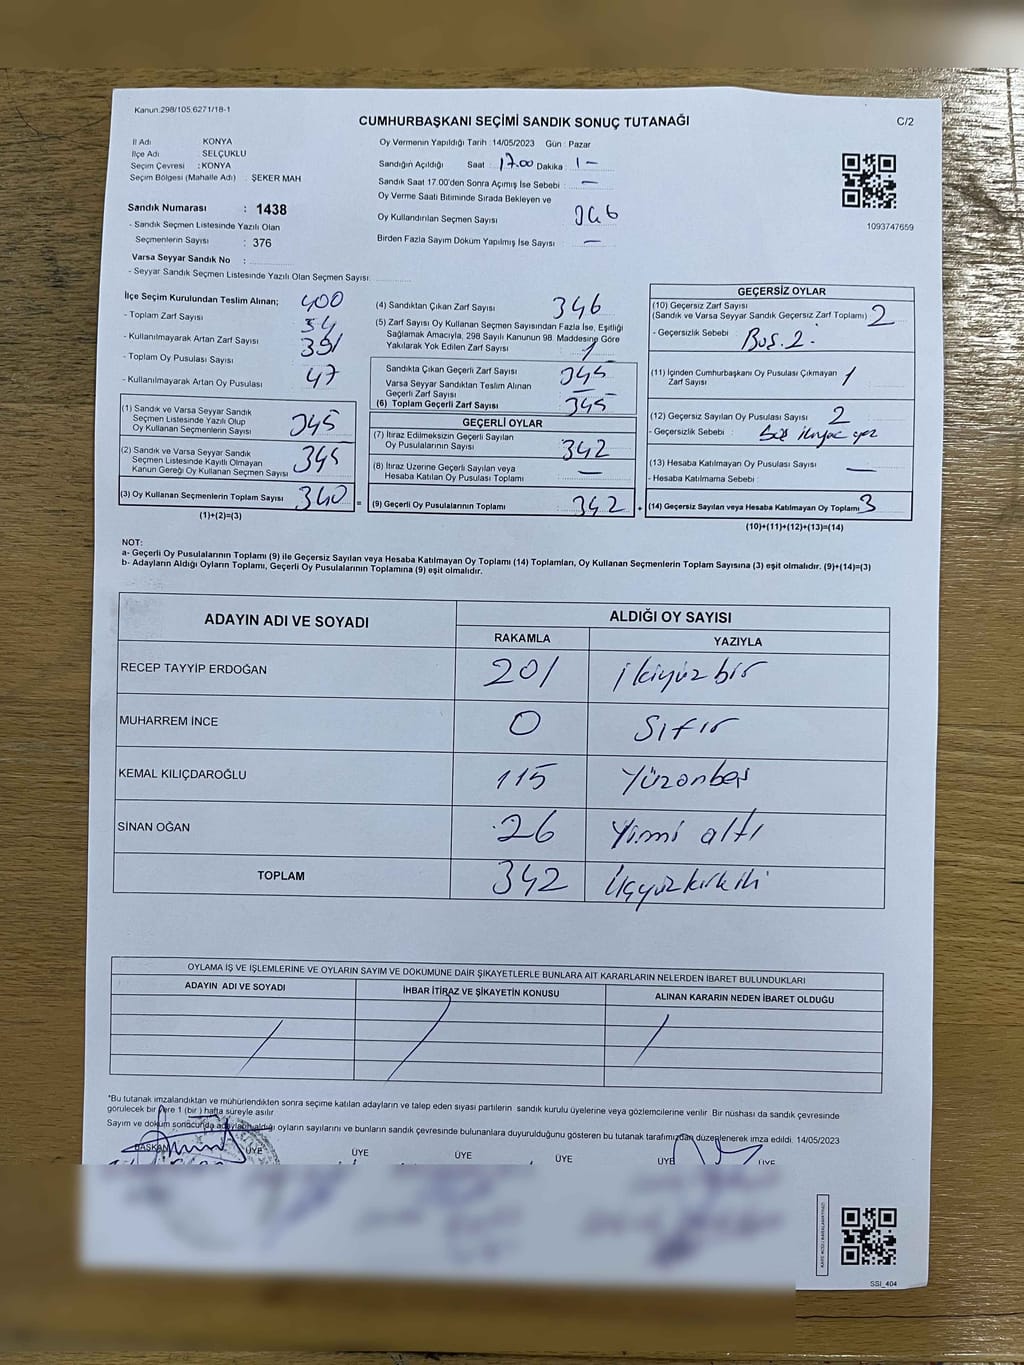 Kanun:298/105,6271/18-1
CUMHURBAŞKANI SEÇİMİ SANDIK SONUÇ TUTANAĞI
C/2
İl Adı KONYA
İlçe Adı SELÇUKLU
Seçim Çevresi : KONYA
Seçim Bölgesi (Mahalle Adı) . ŞEKER MAH
Sandık Numarası : 1438
- Sandık Seçmen Listesinde Yazılı Olan
Seçmenlerin Sayısı : 376
Varsa Seyyar Sandık No :
- Seyyar Sandık Seçmen Listesinde Yazılı Olan Seçmen Sayısı:
Oy Vermenin Yapıldığı Tarih :14/05/2023 Gün : Pazar
Sandığın Açıldığı Saat : 17.00 Dakika : 1 -
Sandık Saat 17.00'den Sonra Açımış İse Sebebi : -
Oy Verme Saati Bitiminde Sırada Bekleyen ve
Oy Kullandırılan Seçmen Sayısı 346
Birden Fazla Sayım Döküm Yapılmış İse Sayısı : -
1093747659
İlçe Seçim Kurulundan Teslim Alınan;
- Toplam Zarf Sayısı 400
- Kullanılmayarak Artan Zarf Sayısı 54
- Toplam Oy Pusulası Sayısı 391
- Kullanılmayarak Artan Oy Pusulası 47
(1) Sandık ve Varsa Seyyar Sandık
Seçmen Listesinde Yazılı Olup
Oy Kullanan Seçmenlerin Sayısı 345
(2) Sandık ve Varsa Seyyar Sandık
Seçmen Listesinde Kayıtlı Olmayan
Kanun Gereği Oy Kullanan Seçmen Sayısı 345
(3) Oy Kullanan Seçmenlerin Toplam Sayısı 340 =
(1)+(2)=(3)
(4) Sandıktan Çıkan Zarf Sayısı 346
(5) Zarf Sayısı Oy Kullanan Seçmen Sayısından Fazla İse, Eşitliği
Sağlamak Amacıyla, 298 Sayılı Kanunun 98. Maddesine Göre
Yakılarak Yok Edilen Zarf Sayısı 1
Sandıkta Çıkan Geçerli Zarf Sayısı 345
Varsa Seyyar Sandıktan Teslim Alınan
Geçerli Zarf Sayısı -
(6) Toplam Geçerli Zarf Sayısı 345
GEÇERLİ OYLAR
(7) İtiraz Edilmeksizin Geçerli Sayılan
Oy Pusulalarının Sayısı 342
(8) İtiraz Üzerine Geçerli Sayılan veya
Hesaba Katılan Oy Pusulası Toplamı -
(9) Geçerli Oy Pusulalarının Toplamı 342 +
GEÇERSİZ OYLAR
(10) Geçersiz Zarf Sayısı
(Sandık ve Varsa Seyyar Sandık Geçersiz Zarf Toplamı) 2
- Geçersizlik Sebebi : Boş. 2.
(11) İçinden Cumhurbaşkanı Oy Pusulası Çıkmayan
Zarf Sayısı 1
(12) Geçersiz Sayılan Oy Pusulası Sayısı 2
- Geçersizlik Sebebi :
(13) Hesaba Katılmayan Oy Pusulası Sayısı -
- Hesaba Katılmama Sebebi :
(14) Geçersiz Sayılan veya Hesaba Katılmayan Oy Toplamı 3
(10)+(11)+(12)+(13)=(14)
NOT:
a- Geçerli Oy Pusulalarının Toplamı (9) ile Geçersiz Sayılan veya Hesaba Katılmayan Oy Toplamı (14) Toplamları, Oy Kullanan Seçmenlerin Toplam Sayısına (3) eşit olmalıdır. (9)+(14)=(3)
b- Adayların Aldığı Oyların Toplamı, Geçerli Oy Pusulalarının Toplamına (9) eşit olmalıdır.
ADAYIN ADI VE SOYADI ALDIĞI OY SAYISI
RAKAMLA YAZIYLA
RECEP TAYYİP ERDOĞAN 201 ikiyüzbir
MUHARREM İNCE 0 Sıfır
KEMAL KILIÇDAROĞLU 115 Yüzonbeş
SİNAN OĞAN 26 Yirmi altı
TOPLAM 342 Üçyüzkırkiki
OYLAMA İŞ VE İŞLEMLERİNE VE OYLARIN SAYIM VE DÖKÜMÜNE DAİR ŞİKAYETLERLE BUNLARA AİT KARARLARIN NELERDEN İBARET BULUNDUKLARI
ADAYIN ADI VE SOYADI İHBAR İTİRAZ VE ŞİKAYETİN KONUSU ALINAN KARARIN NEDEN İBARET OLDUĞU
*Bu tutanak imzalandıktan ve mühürlendikten sonra seçime katılan adayların ve talep eden siyasi partilerin sandık kurulu üyelerine veya gözlemcilerine verilir. Bir nüshası da sandık çevresinde
görülecek bir yere 1 (bir ) hafta süreyle asılır.
Sayım ve döküm sonucunda adayların aldığı oyların sayılarını ve bunların sandık çevresinde bulunanlara duyurulduğunu gösteren bu tutanak tarafımızdan düzenlenerek imza edildi. 14/05/2023
BAŞKAN ÜYE ÜYE ÜYE ÜYE ÜYE ÜYE
SSI_404